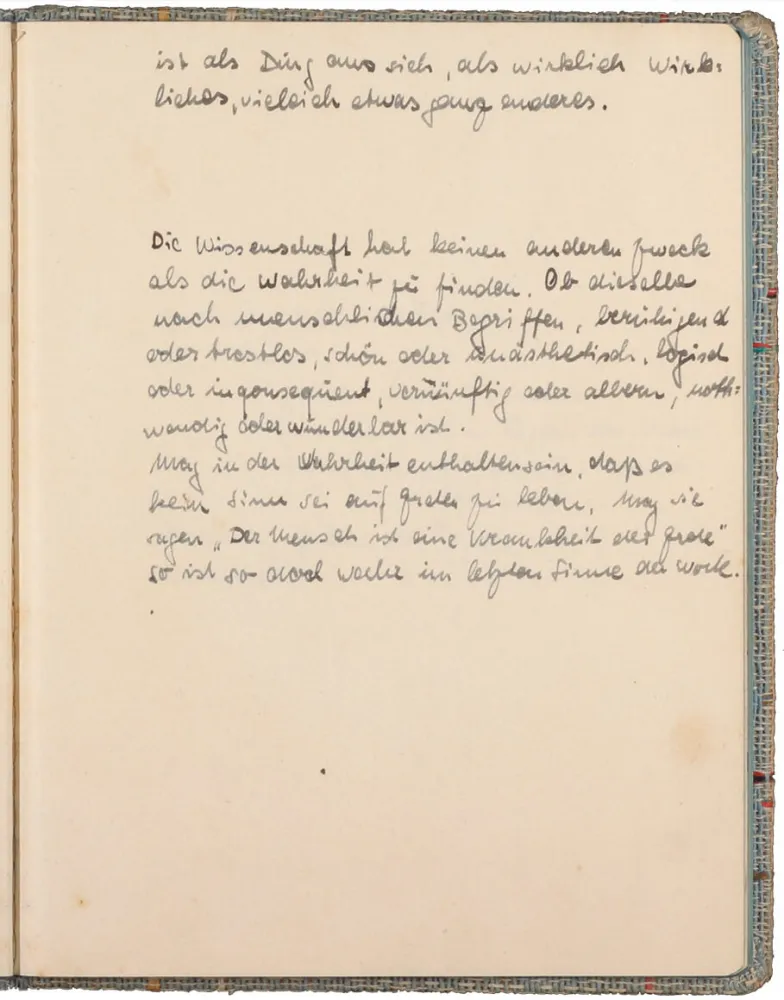 ist als Ding aus sich, als wirklich Wirk=
liches, vieleich etwas ganz anderes.
Die Wissenschaft hat keinen anderen zweck
als die Wahrheit zu finden. Ob dieselbe
nach menschlichen Begriffen, beruhigend
oder trostlos, schön oder unästhetisch, logisch
oder inqonsequent, vernünftig oder albern, noth=
wendig oder wunderbar ist.
Mag in der Wahrheit enthalten sein, daß es
kein Sinn sei auf zu leben, mag sie
sagen „Der Mensch ist eine Krankheit der Erde"
so ist so doch im letzten Sinne